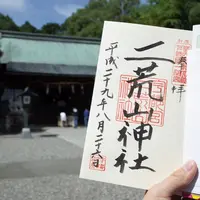 奉拝
二荒山神社
平成二十九年八月二十六日